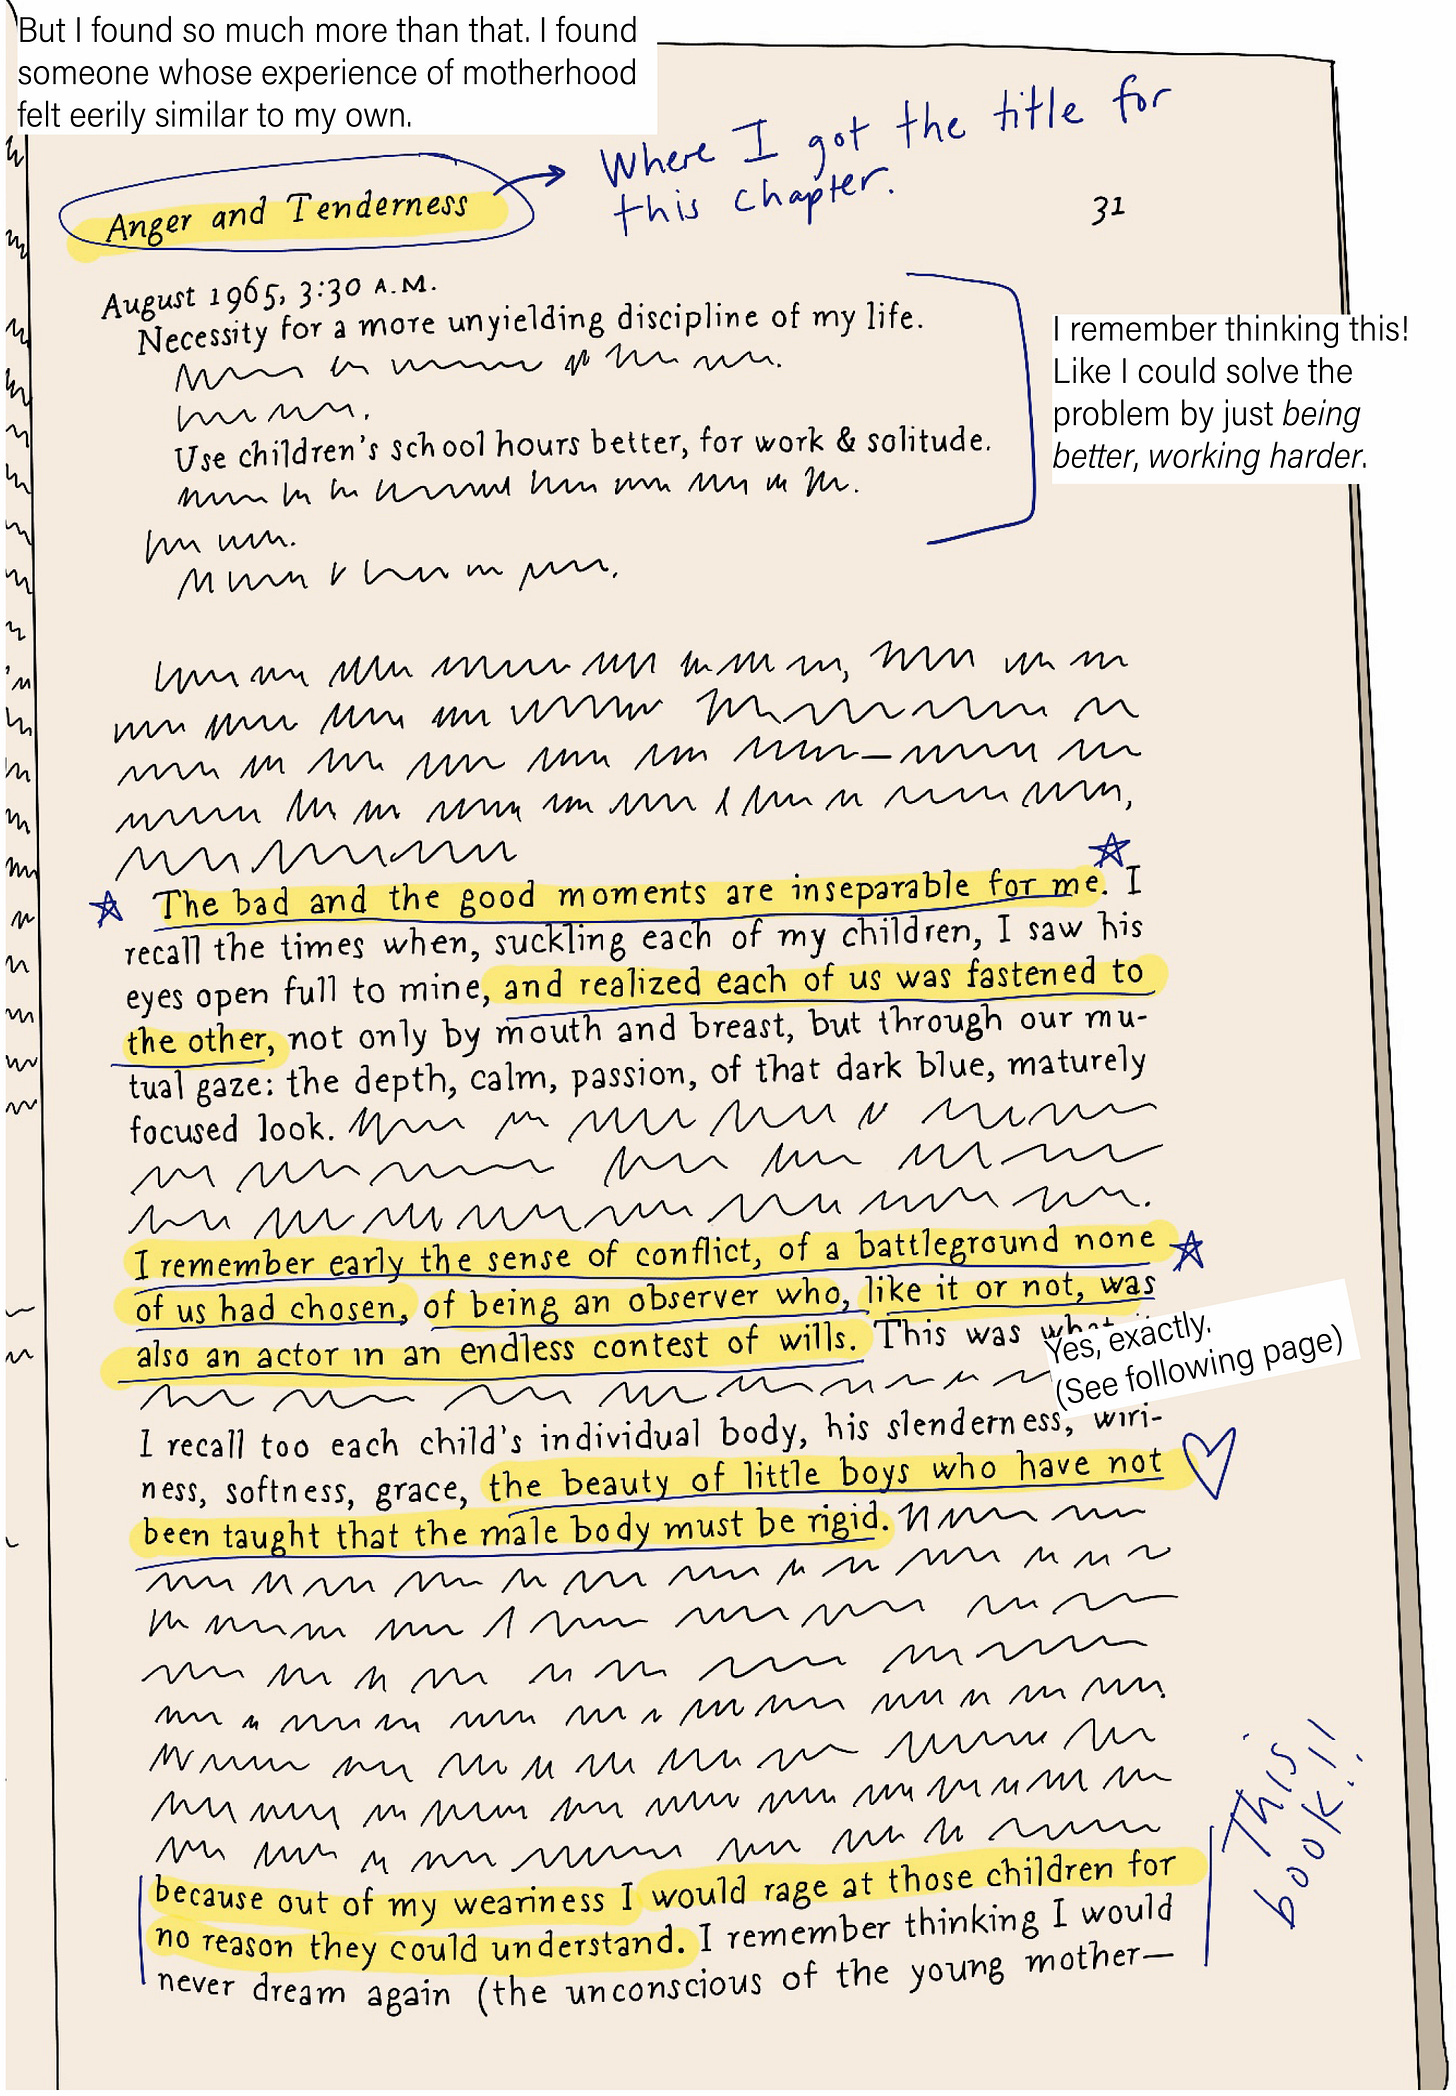 But I found so much more than that. I found
someone whose experience of motherhood
felt eerily similar to my own.
Anger and Tenderness
Where I got the title for
this chapter.
31
August 1965, 3:30 A.M.
Necessity for a more unyielding discipline of my life.
Use children's school hours better, for work & solitude.
I remember thinking this!
Like I could solve the
problem by just being
better, working harder.
The bad and the good moments are inseparable for me. I
recall the times when, suckling each of my children, I saw his
eyes open full to mine, and realized each of us was fastened to
the other, not only by mouth and breast, but through our mu-
tual gaze: the depth, calm, passion, of that dark blue, maturely
focused look.
I remember early the sense of conflict, of a battleground none
of us had chosen, of being an observer who, like it or not, was
also an actor in an endless contest of wills. This was
Yes, exactly.
(See following page)
I recall too each child's individual body, his slenderness, wiri-
ness, softness, grace, the beauty of little boys who have not
been taught that the male body must be rigid.
This
book!!
because out of my weariness I would rage at those children for
no reason they could understand. I remember thinking I would
never dream again (the unconscious of the young mother—